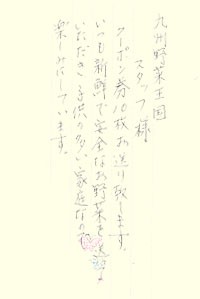 九州野菜王国
スタッフ様
クーポン券10枚お送り致します。
いつも新鮮で安全なお野菜を
いただき子供の多い家庭なので
楽しみにしています。